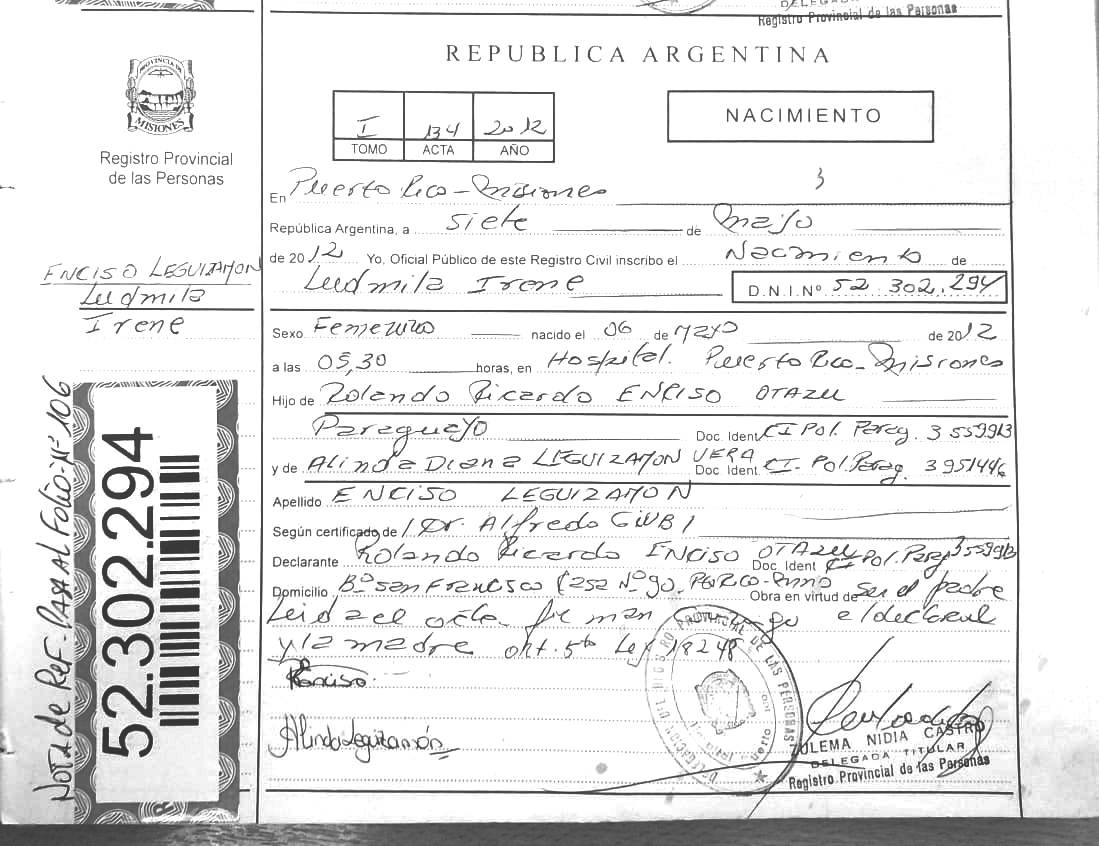 DELEGADA
Registro Provincial de las Personas
REPUBLICA ARGENTINA
PROVINCIA DE
MISIONES
Registro Provincial
de las Personas
I 134 2012
TOMO ACTA AÑO
NACIMIENTO
3
En Puerto Rico - Misiones
República Argentina, a siete de Mayo
de 2012 Yo, Oficial Público de este Registro Civil inscribo el Nacimiento de
Ludmila Irene D.N.I Nº 52.302.294
ENCISO LEGUIZAMON
Ludmila
Irene
Sexo Femenino nacido el 06 de Mayo de 2012
a las 05,30 horas, en Hospital. Puerto Rico - Misiones
Hijo de Rolando Ricardo ENCISO OTAZU
Paraguayo Doc. Ident CI Pol. Parag. 3559913
y de Alinda Diana LEGUIZAMON VERA Doc. Ident CI. Pol. Parag. 3951446
Apellido ENCISO LEGUIZAMON
Según certificado de Dr. Alfredo
Declarante Rolando Ricardo ENCISO OTAZU Doc. Ident CI Pol. Parag 3559913
Domicilio Bº San Francisco Casa Nº 90. Obra en virtud de ser el padre
Leida el acta el
y la madre Art. 5to Ley 18248
Enciso
Alinda Leguizamón
DELEGACION DEL REGISTRO PROVINCIAL DE LAS PERSONAS
ZULEMA NIDIA CASTRO
DELEGADA TITULAR
Registro Provincial de las Personas
NOTA de Ref. PASA AL Folio Nº 106
52.302.294